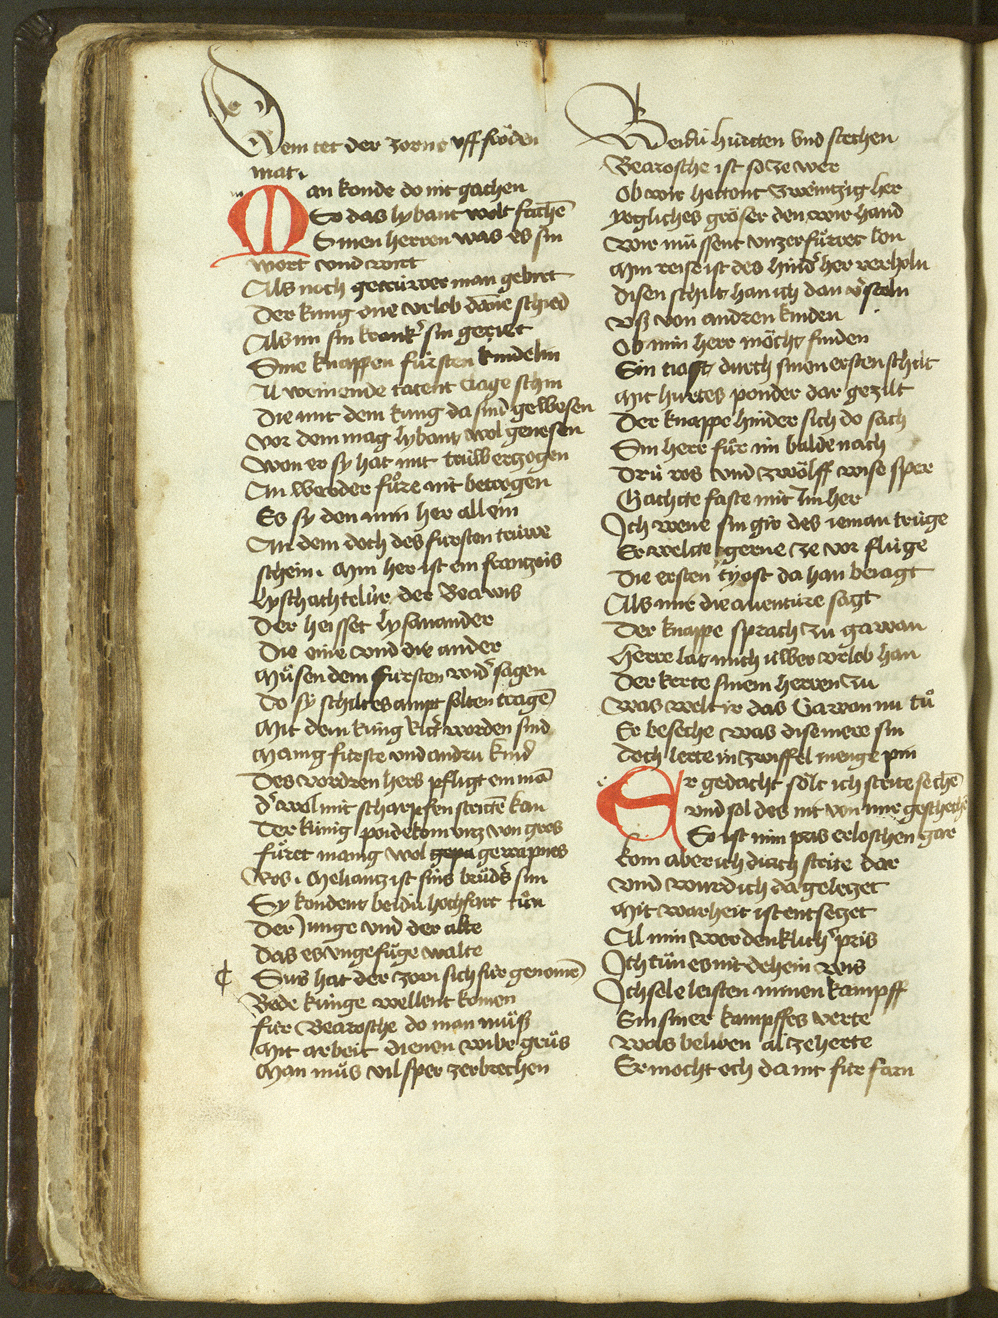 Dem tet der zorne uff fröden
mat ·
Man konde do nit gachen
So das lybant wolt fachē
Sinen herren was es sin
wort vnd wort
Als noch getrüwer man gebirt
Der kung one vrlob dañe schied
Als im sin krankˀ sin geriet
Sine knappen fürsten kindelin
Al weinende tatent clage schin
Die mit dem kung da sind gewesen
vor dem mag lybant wol genesen
Won er sy hat mit trüw erzogen
An werder füre nit betrogen
Es sy den min her allein
An dem doch des fürsten trüwe
schein · Min her ist ein franzois
Lyschahteliur der Beawis
Der heisset lysauander
Die eine vnd die ander
Müsen dem fürsten widˀ sagen
Do sy schiltes ampt solten tragē
Mit dem küng Ritˀ worden sind
Manig fürste vnd andru kind
Des vordren hers pfligt ein mā
dˀ wol mit scharpfen stritē kan
Der künig poidekom vnz von gros
füret manig wol gewapnes
Ros · Meliantz ist sins brüdˀs sin
Sy kondent beidu hochfart tün
Der Junge vnd der alte
Das es vngefüge walte
¢ Sus hat der zorn sich für genomē
Bede künge wellent komen
für Bearosche do man müß
Mit arbeit dienen wibe grüs
Man müs vil sper zerbrechen
Beidu hurten vnd stechen
Bearosche ist so ze wer
Ob wir hettent zweintzig her
Yegliches gröser den wir hand
Wir müssent vnzerfüret lon
Min reise ist des hindˀ her verholn
Disen schilt han ich dan v̾stoln
vß von andren kinden
Ob min herr möcht finden
Ein tiost durch sinen ersten schilt
Mit hurtes ponder dar gezilt
Der knappe hinder sich do sach
Sin herr für im balde nach
Drü ros vnd zwölff wise sper
Gachete faste mit im her
Ich wene sin gir des ieman trüge
Er welte gerne ze vor flüge
Die ersten tyost da han beiagt
Als mir die auenture sagt
Der knappe sprach zu gawan
Herre lat mich üwer vrlob han
Der kerte sinem herren zu
Was welt ir das Gawan nu tů
Er besehe was dise mere sin
Doch lerte in zwiffel menge pin
Er gedacht sölt ich strite sechē
vnd sol des nit von mir geschechē
So ist min pris erloschen gar
Kom aber ich durch strite dar
vnd wurd ich da geletzet
Mit warheit ist entsetzet
Al min werdenklichˀ pris
Ich tün es nit dehein wis
Ich sol e leisten minen kampff
Sin siner kampffes werte
Was beliben al ze herte
Er mocht och da nit für farn